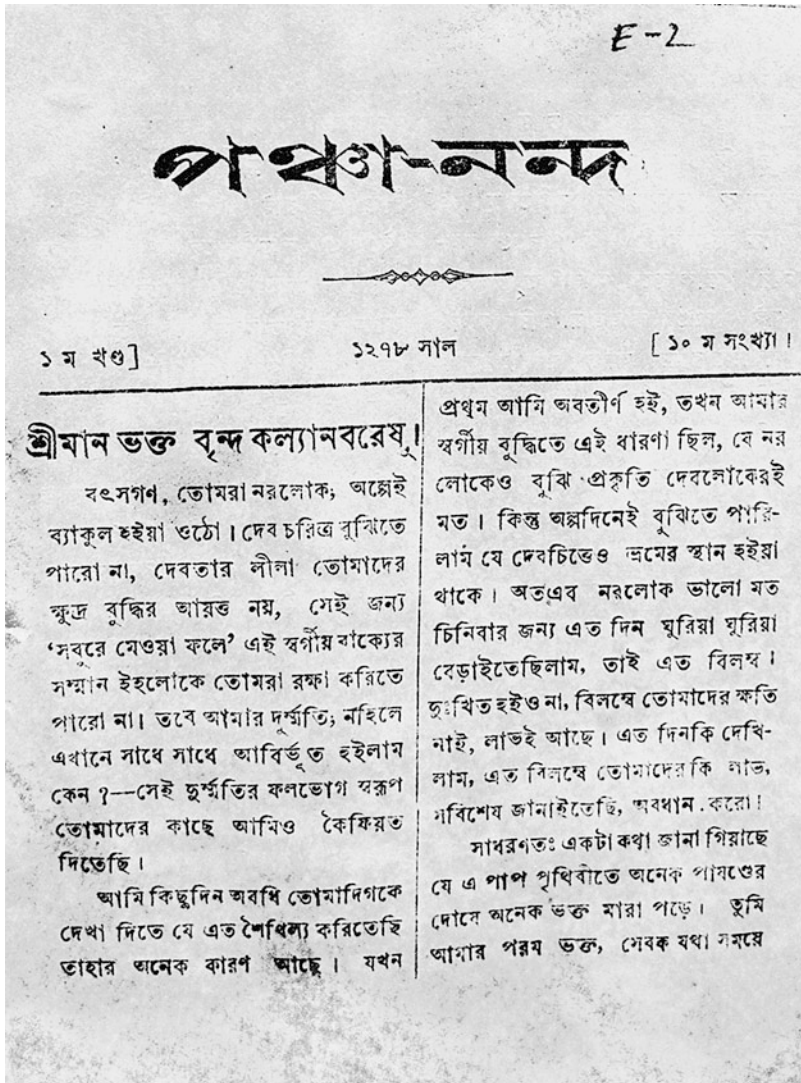 E-2
পঞ্চা-নন্দ
১ ম খণ্ড]
১২৭৮ সাল
[১০ ম সংখ্যা।
শ্রীমান ভক্ত বৃন্দ কল্যানবরেষু!
বৎসগণ, তোমরা নরলোক; অল্পেই
ব্যাকুল হইয়া ওঠো। দেব চরিত্র বুঝিতে
পারো না, দেবতার লীলা তোমাদের
ক্ষুদ্র বুদ্ধির আয়ত্ত নয়, সেই জন্য
‘সবুরে মেওয়া ফলে’ এই স্বর্গীয় বাক্যের
সম্মান ইহলোকে তোমরা রক্ষা করিতে
পারো না। তবে আমার দুর্ম্মতি; নহিলে
এখানে সাধে সাধে আবির্ভূত হইলাম
কেন ?—সেই দুর্ম্মতির ফলভোগ স্বরূপ
তোমাদের কাছে আমিও কৈফিয়ত
দিতেছি।
আমি কিছুদিন অবধি তোমাদিগকে
দেখা দিতে যে এত শৈথিল্য করিতেছি
তাহার অনেক কারণ আছে। যখন
প্রথম আমি অবতীর্ণ হই, তখন আমার
স্বর্গীয় বুদ্ধিতে এই ধারণা ছিল, যে নর
লোকেও বুঝি প্রকৃতি দেবলোকেরই
মত। কিন্তু অল্পদিনেই বুঝিতে পারি-
লাম যে দেবচিত্তেও ভ্রমের স্থান হইয়া
থাকে। অতএব নরলোক ভালো মত
চিনিবার জন্য এত দিন ঘুরিয়া ঘুরিয়া
বেড়াইতেছিলাম, তাই এত বিলম্ব।
দুঃখিত হইও না, বিলম্বে তোমাদের ক্ষতি
নাই, লাভই আছে। এত দিনকি দেখি-
লাম, এত বিলম্বে তোমাদের কি লাভ,
সবিশেষ জানাইতেছি, অবধান করো।
সাধরণতঃ একটা কথা জানা গিয়াছে
যে এ পাপ পৃথিবীতে অনেক পাষণ্ডের
দোষে অনেক ভক্ত মারা পড়ে। তুমি
আমার পরম ভক্ত, সেবক যথা সময়ে